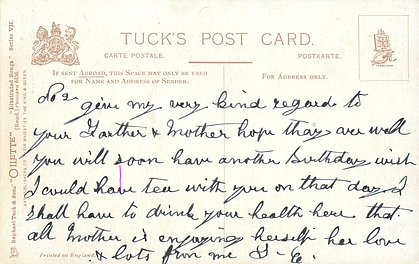 TUCK'S POST CARD.
CARTE POSTALE. POSTKARTE.
IF SENT ABROAD, THIS SPACE MAY ONLY BE USED
FOR NAME AND ADDRESS OF SENDER.
FOR ADDRESS ONLY.
give my very kind regards to
your Farther & Mother hope they are well
you will soon have another Birthday wish
I could have tea with you on that day I
shall have to drink your health here that
all Mother is enjoying herself her love
& lots from me
Printed in England
Raphael Tuck & Sons' "OILETTE" "Illustrated Songs" Series VII.